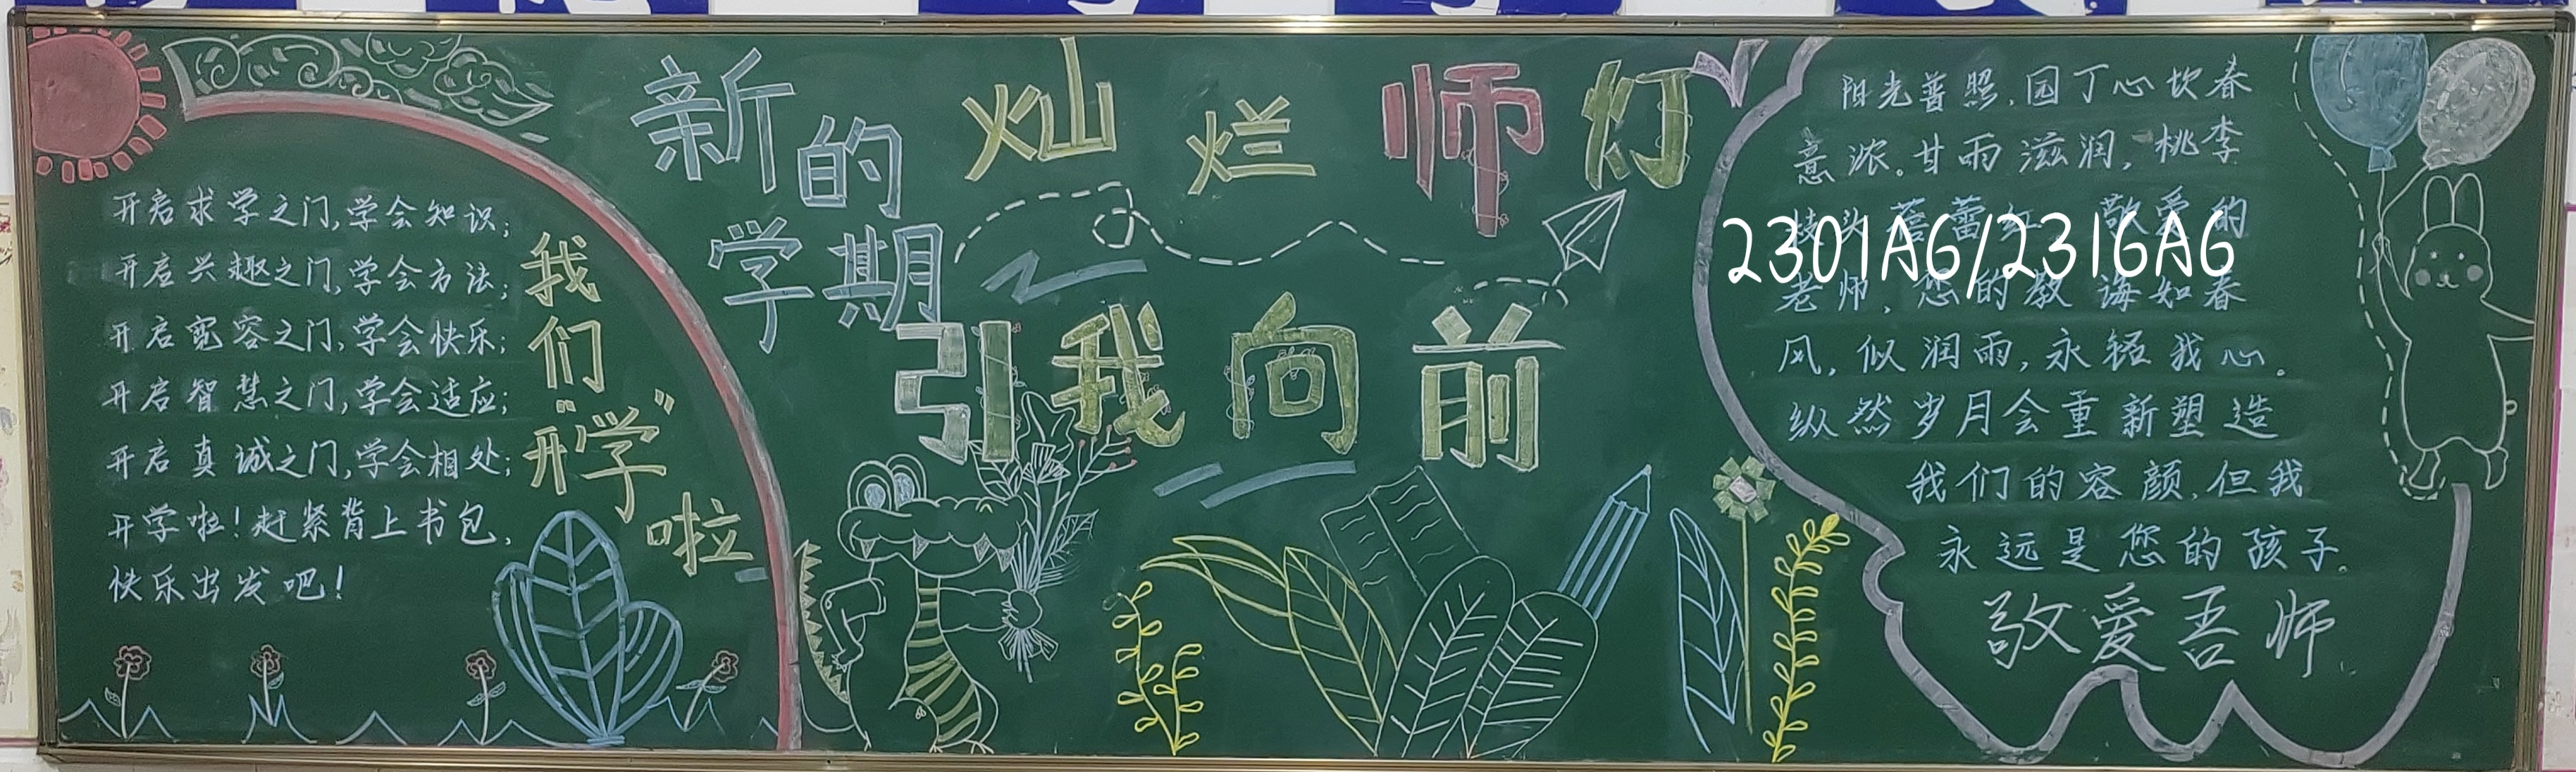 开启求学之门,学会知识;
开启兴趣之门,学会方法;
开启宽容之门,学会快乐;
开启智慧之门,学会适应;
开启真诚之门,学会相处;
开学啦!赶紧背上书包,
快乐出发吧!
我们"开学"啦
新的
学期
灿烂师灯
引我向前
阳光普照,园丁心坎春
意浓。甘雨滋润,桃李
枝头蓓蕾红。敬爱的
2301AG/2316AG
老师,您的教诲如春
风,似润雨,永铭我心。
纵然岁月会重新塑造
我们的容颜,但我
永远是您的孩子。
敬爱吾师